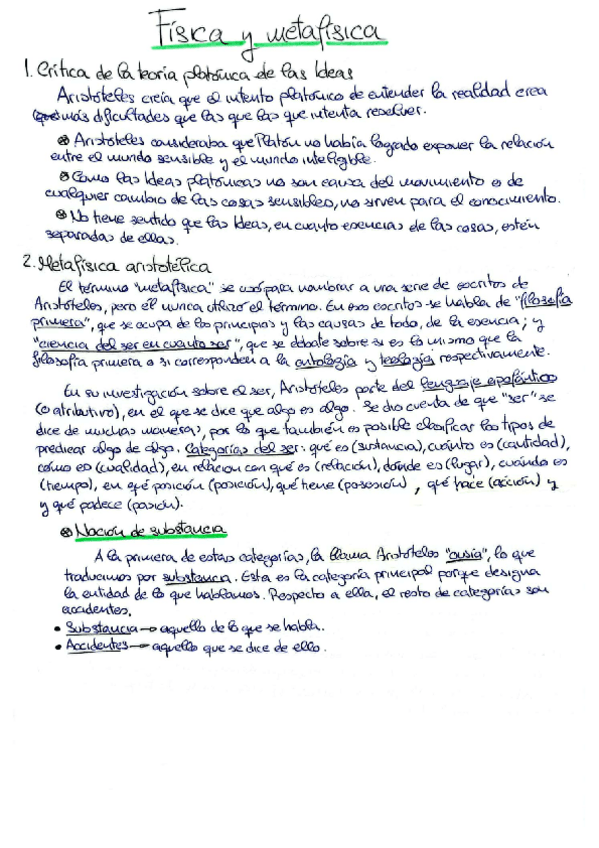 Física y metafísica
1. Crítica de la teoría platónica de las Ideas
Aristóteles creía que el intento platónico de entender la realidad crea
(que) más dificultades que las que las que intenta resolver.
⊗ Aristóteles consideraba que Platón no había logrado exponer la relación
entre el mundo sensible y el mundo inteligible.
⊗ Como las Ideas platónicas no son causa del movimiento o de
cualquier cambio de las cosas sensibles, no sirven para el conocimiento.
⊗ No tiene sentido que las Ideas, en cuanto esencias de las cosas, estén
separadas de ellas.
2. Metafísica aristotélica
El término "metafísica" se usó para nombrar a una serie de escritos de
Aristóteles, pero él nunca utilizó el término. En esos escritos se habla de "filosofía
primera", que se ocupa de los principios y las causas de todo, de la esencia; y
"ciencia del ser en cuanto ser", que se debate sobre si es lo mismo que la
filosofía primera o si corresponden a la ontología y teología respectivamente.
En su investigación sobre el ser, Aristóteles parte del lenguaje apofántico
(o atributivo), en el que se dice que algo es algo. Se dio cuenta de que "ser" se
dice de muchas maneras, por lo que también es posible clasificar los tipos de
predicar algo de algo. Categorías del ser: qué es (sustancia), cuánto es (cantidad),
cómo es (cualidad), en relación con qué es (relación), dónde es (lugar), cuándo es
(tiempo), en qué posición (posición), qué tiene (posesión), qué hace (acción) y
y qué padece (pasión).
⊗ Noción de substancia
A la primera de estas categorías, la llama Aristóteles "ousía", lo que
traducimos por substancia. Esta es la categoría principal porque designa
la entidad de lo que hablamos. Respecto a ella, el resto de categorías son
accidentes.
• Substancia → aquello de lo que se habla.
• Accidentes → aquello que se dice de ello.